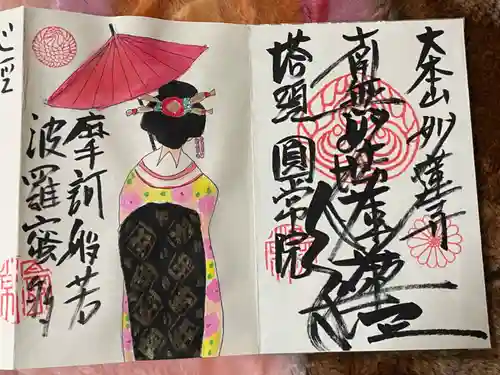 大本山妙蓮寺
南無妙法蓮華経
塔頭 圓常院
摩訶般若
波羅蜜多
心経